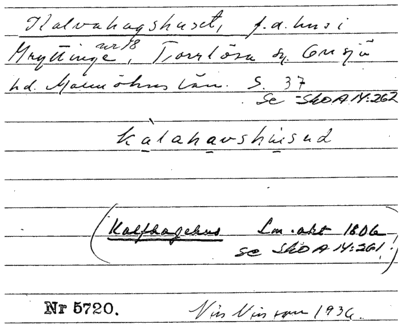 Kalvahagshuset, f.d. hus i
Myttinge nr 18, Torrlösa sn, Onsjö
hd. Malmöhus län. S. 37
se SkOA IV:262
kalahavshused
(Kalfhagehus Lm.akt 1806
se SkOA IV:261!)
Nr 5720.
Nils Nilsson 1936.